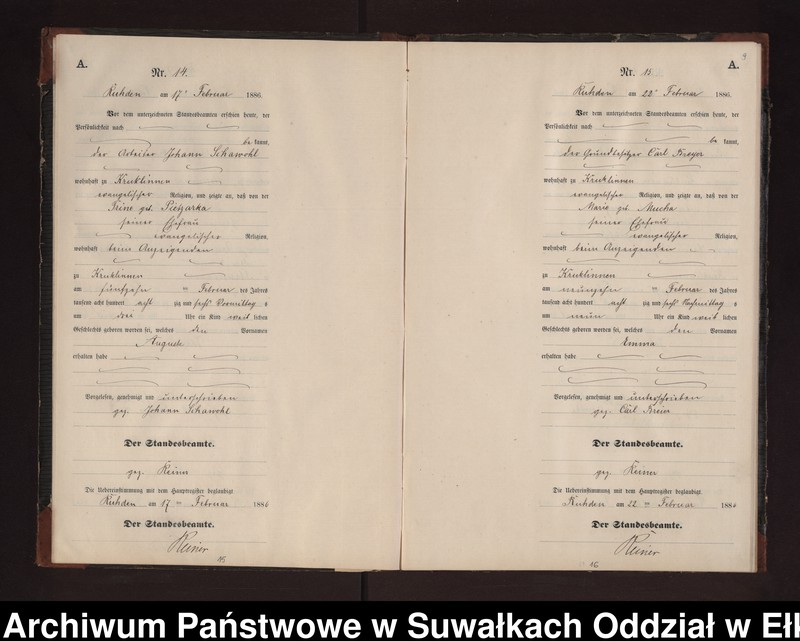 A.
Nr. 14.
Ruhden am 17t Februar 1886.
Vor dem unterzeichneten Standesbeamten erschien heute, der
Persönlichkeit nach
be kannt,
der Arbeiter Johann Schawohl
wohnhaft zu Kruklinnen
evangelischer Religion, und zeigte an, daß von der
Trine geb. Pietzarka
seiner Ehefrau
evangelischer Religion,
wohnhaft beim Anzeigenden
zu Kruklinnen
am fünfzehn ten Februar des Jahres
tausend acht hundert acht zig und sechs Vormittag s
um drei Uhr ein Kind weib lichen
Geschlechts geboren worden sei, welches den Vornamen
Auguste
erhalten habe
Vorgelesen, genehmigt und unterschrieben
gez. Johann Schawohl
Der Standesbeamte.
gez. Reiner
Die Uebereinstimmung mit dem Hauptregister beglaubigt
Ruhden am 17 ten Februar 1886
Der Standesbeamte.
Reiner
15
9
A.
Nr. 15.
Ruhden am 22t Februar 1886.
Vor dem unterzeichneten Standesbeamten erschien heute, der
Persönlichkeit nach
be kannt,
der Grundbesitzer Carl Breyer
wohnhaft zu Kruklinnen
evangelischer Religion, und zeigte an, daß von der
Marie geb. Mucha
seiner Ehefrau
evangelischer Religion,
wohnhaft beim Anzeigenden
zu Kruklinnen
am neunzehn ten Februar des Jahres
tausend acht hundert acht zig und sechs Nachmittag s
um neun Uhr ein Kind weib lichen
Geschlechts geboren worden sei, welches den Vornamen
Emma
erhalten habe
Vorgelesen, genehmigt und unterschrieben
gez. Carl Breier
Der Standesbeamte.
gez. Reiner
Die Uebereinstimmung mit dem Hauptregister beglaubigt
Ruhden am 22 ten Februar 1886
Der Standesbeamte.
Reiner
16
Archiwum Państwowe w Suwałkach Oddział w Eł